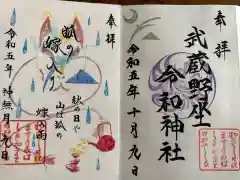 奉拝
武蔵野坐
令和神社
令和五年十月九日
奉拝
狐の
嫁入り
秋の日や
山は狐の
嫁入雨
令和五年 神無月九日